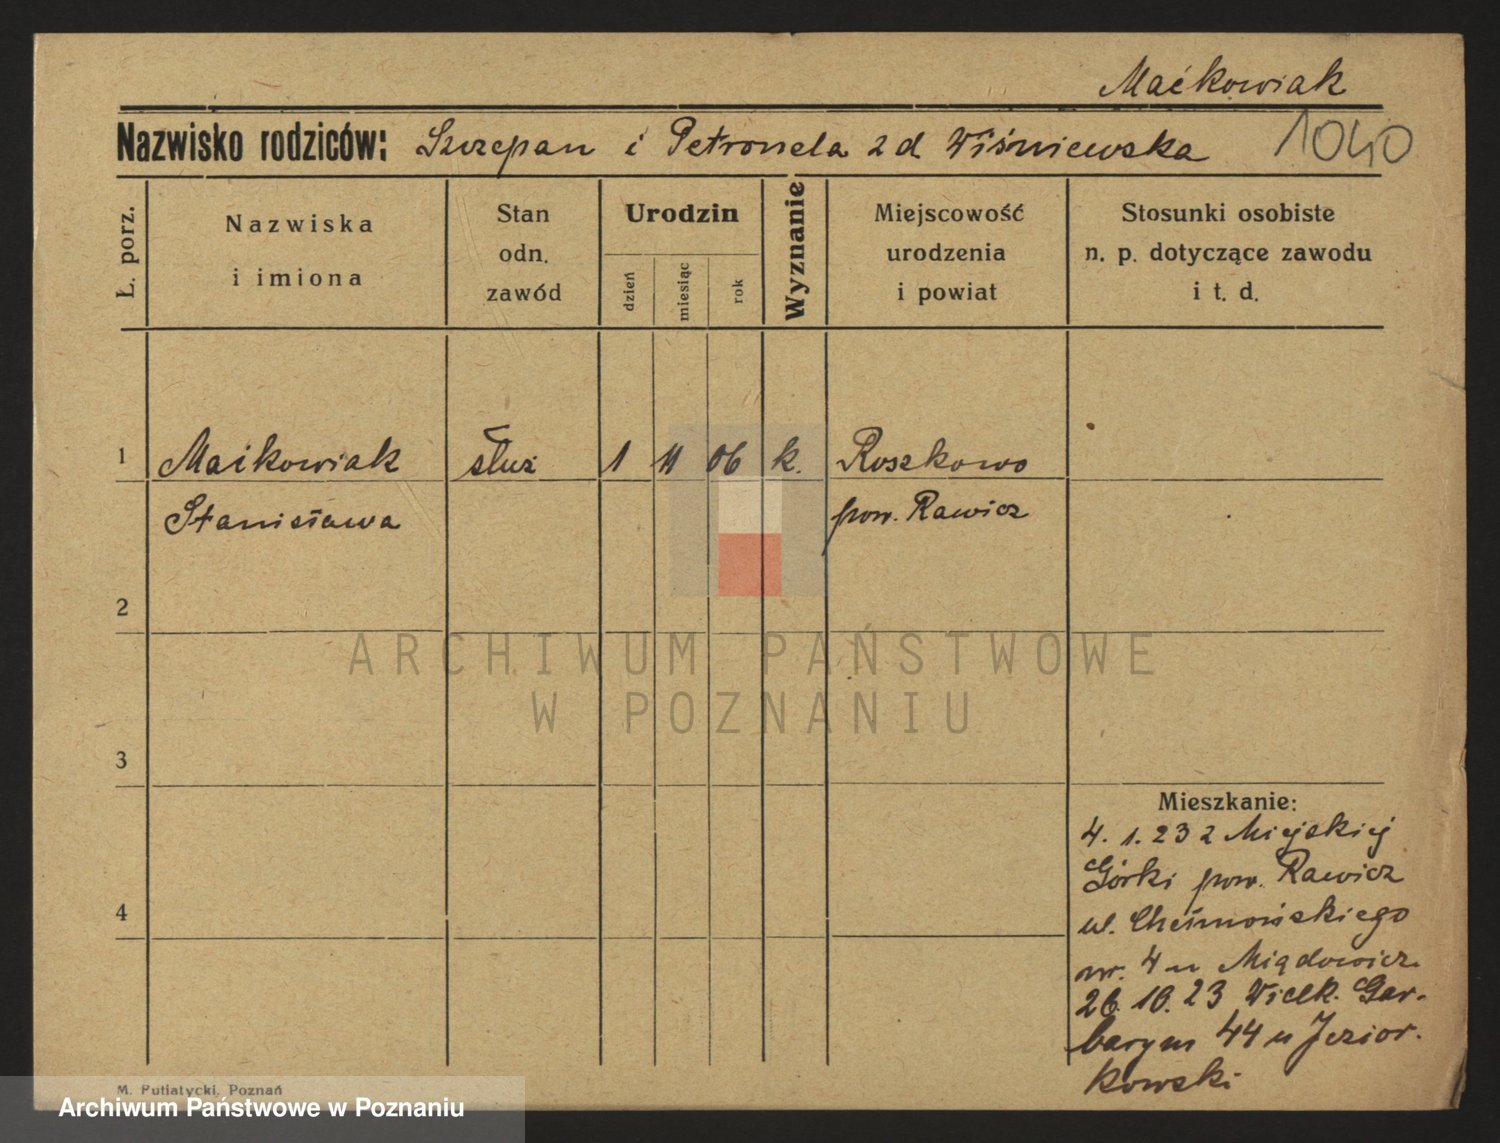 Maćkowiak
Nazwisko rodziców: Szczepan i Petronela z d. Wiśniewska 1040
Ł. porz.
Nazwiska
i imiona
Stan
odn.
zawód
Urodzin
dzień
miesiąc
rok
Wyznanie
Miejscowość
urodzenia
i powiat
Stosunki osobiste
n. p. dotyczące zawodu
i t. d.
1 Maćkowiak służ 1 11 06 k. Roszkowo
Stanisława pow. Rawicz
2
3
4
Mieszkanie:
4. 1. 23 z Miejskiej
Górki pow. Rawicz
ul. Chełmońskiego
nr. 4 u Miądowicz.
26. 10. 23 Wielk. Gar-
barym 44 u Jezior-
kowski
ARCHIWUM PAŃSTWOWE
W POZNANIU
M. Putiatycki, Poznań
Archiwum Państwowe w Poznaniu